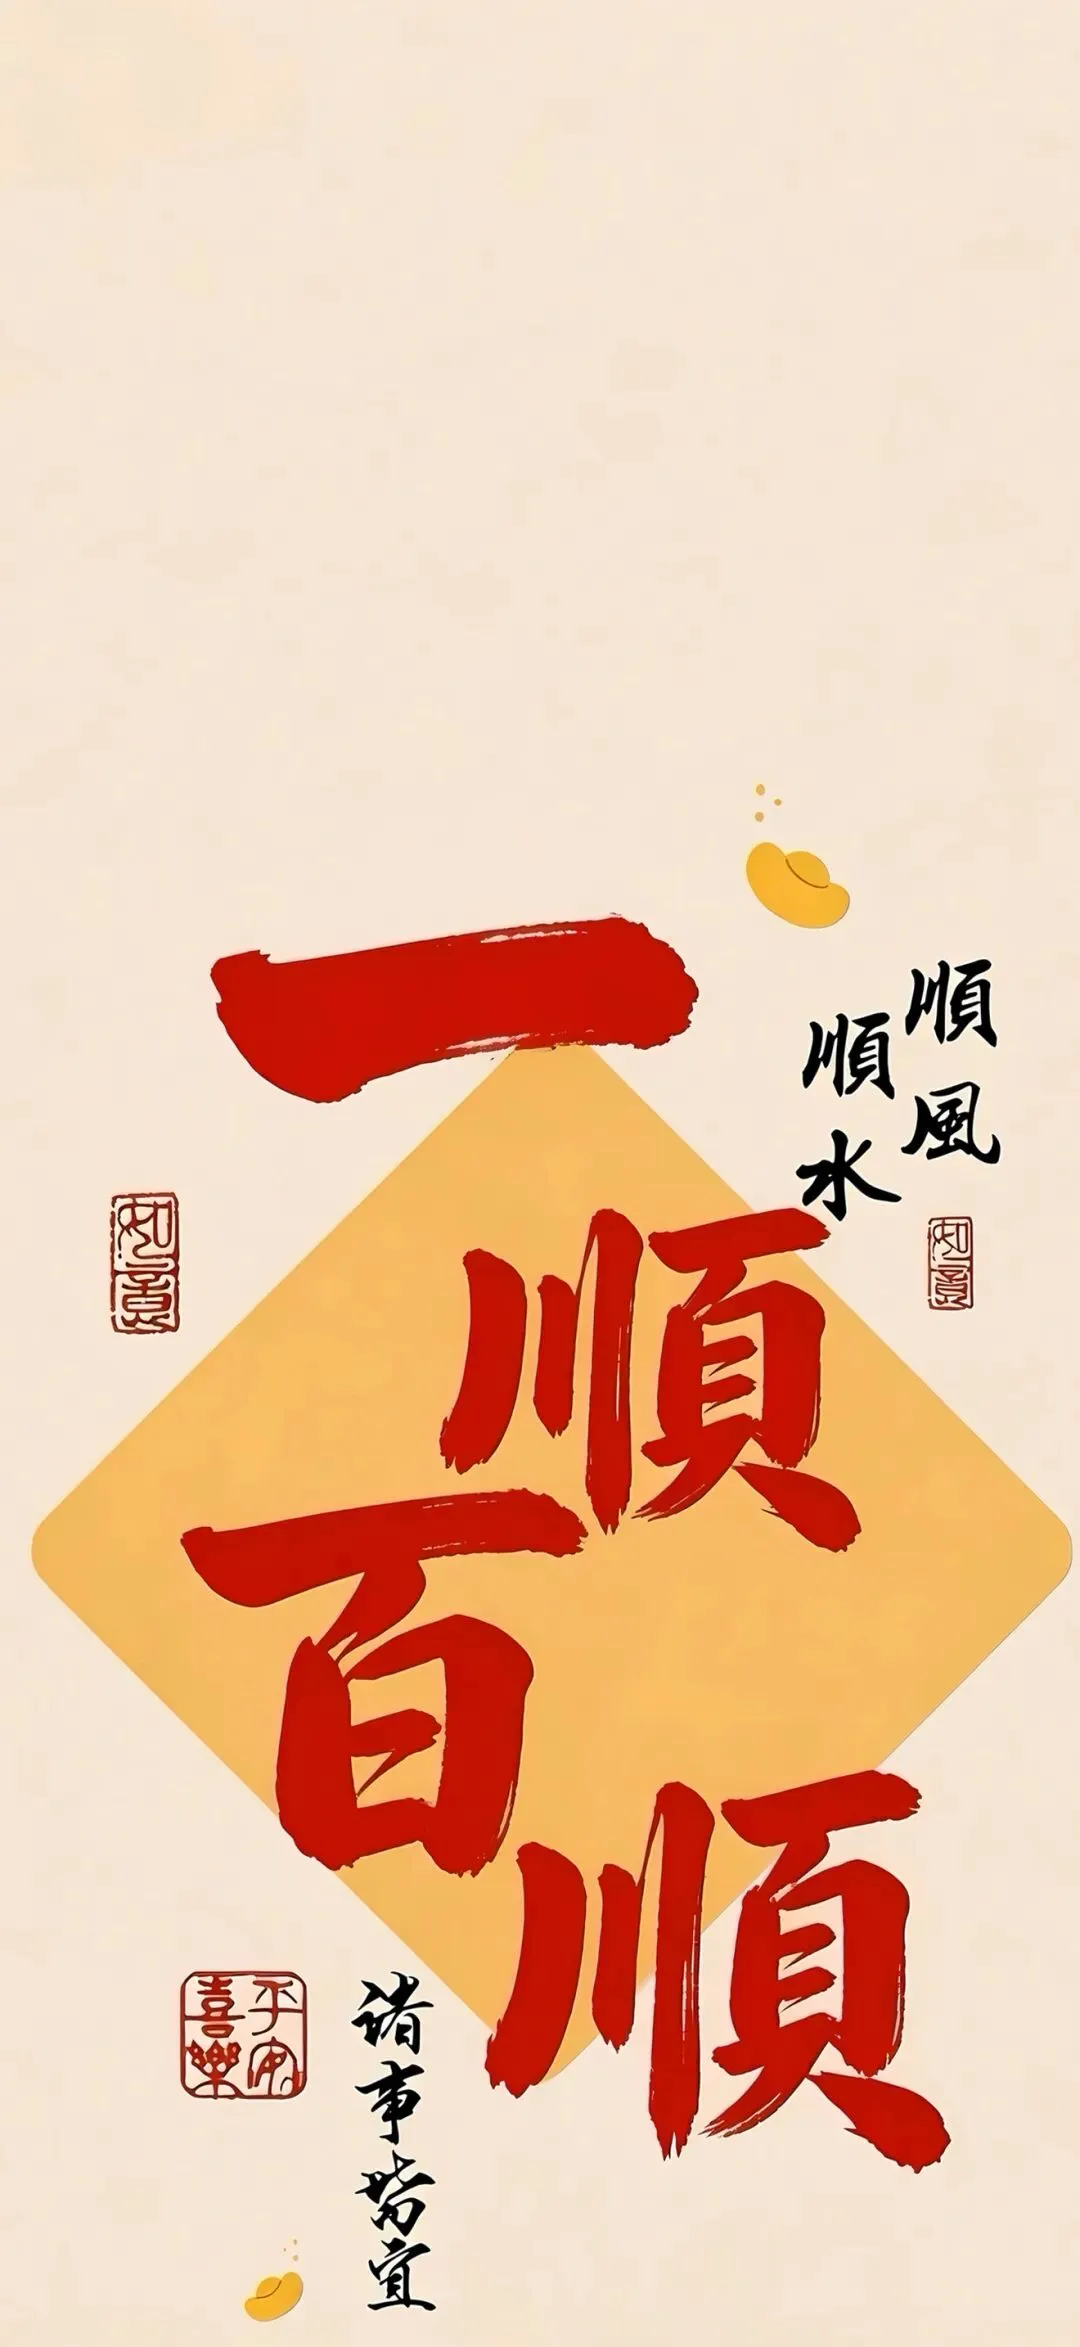 一順百順
順風
順水
如意
如意
平安喜樂
諸事皆宜